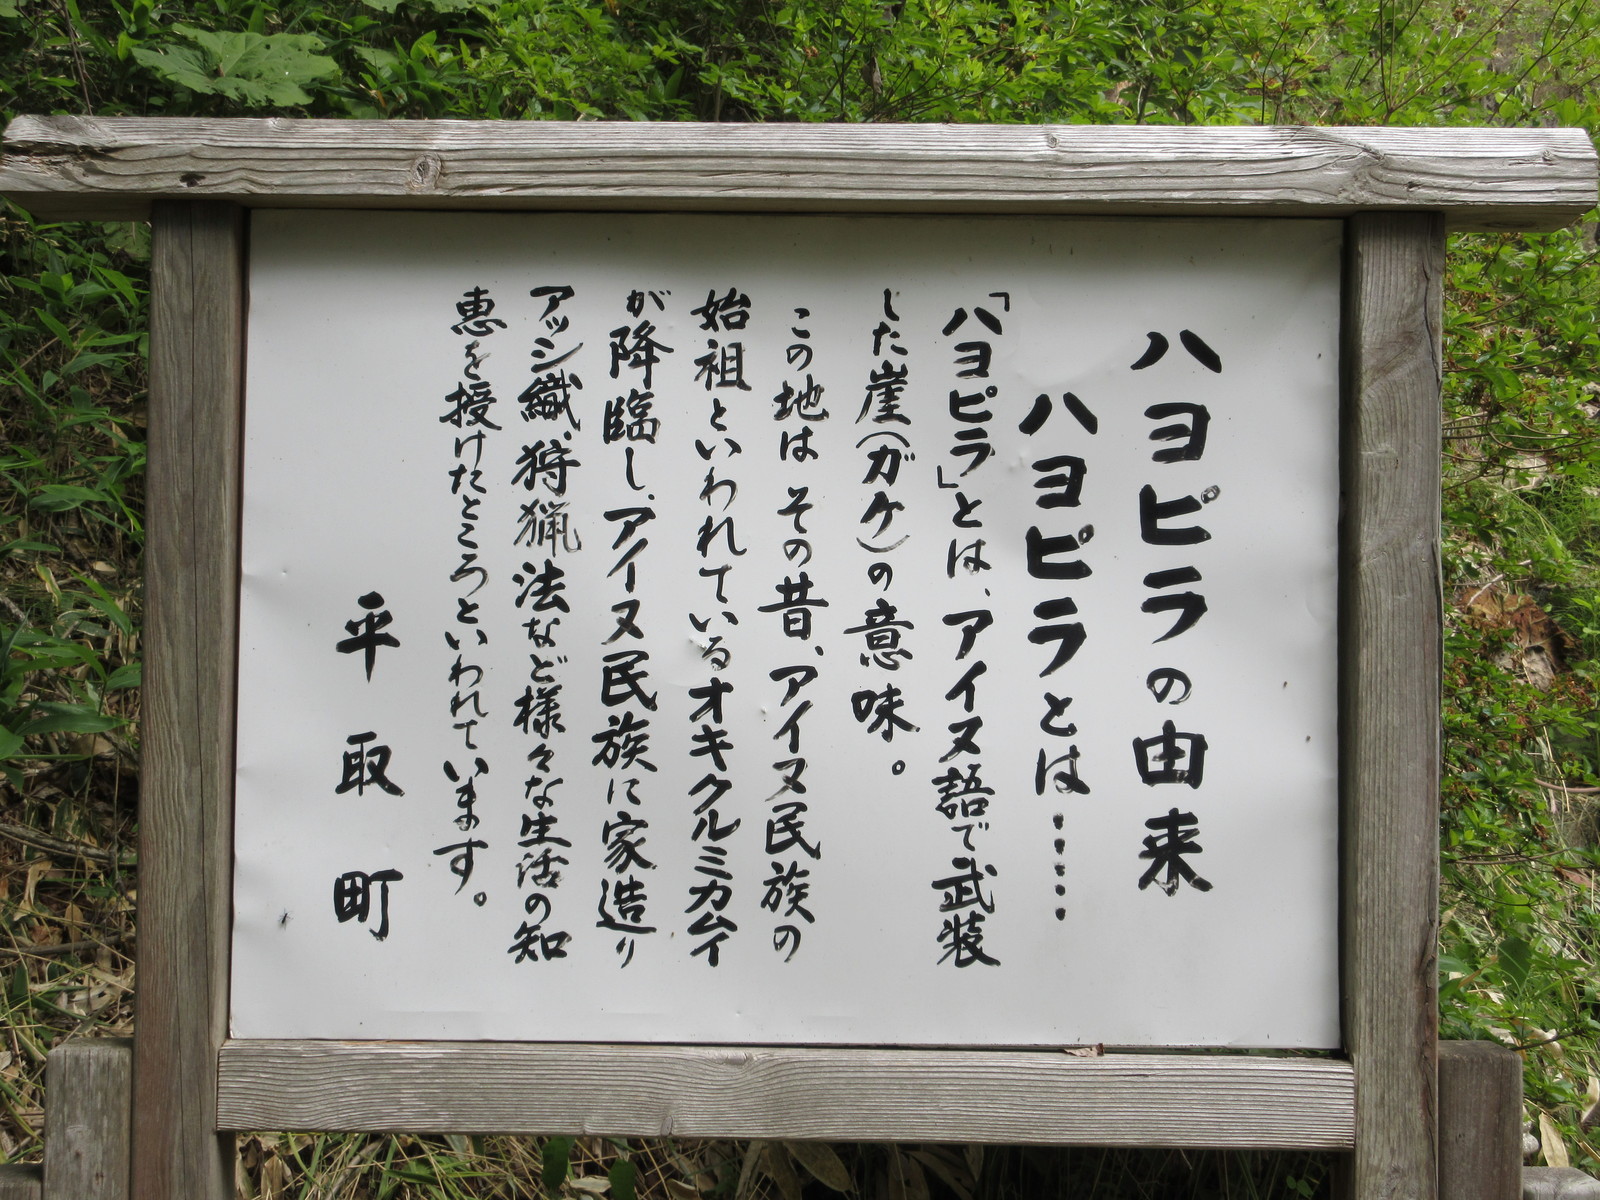 ハヨピラの由来
ハヨピラとは……
「ハヨピラ」とは、アイヌ語で武装
した崖(ガケ)の意味。
この地は その昔、アイヌ民族の
始祖といわれているオキクルミカムイ
が降臨し、アイヌ民族に家造り
アッシ織、狩猟法など様々な生活の知
恵を授けたところといわれています。
平取町